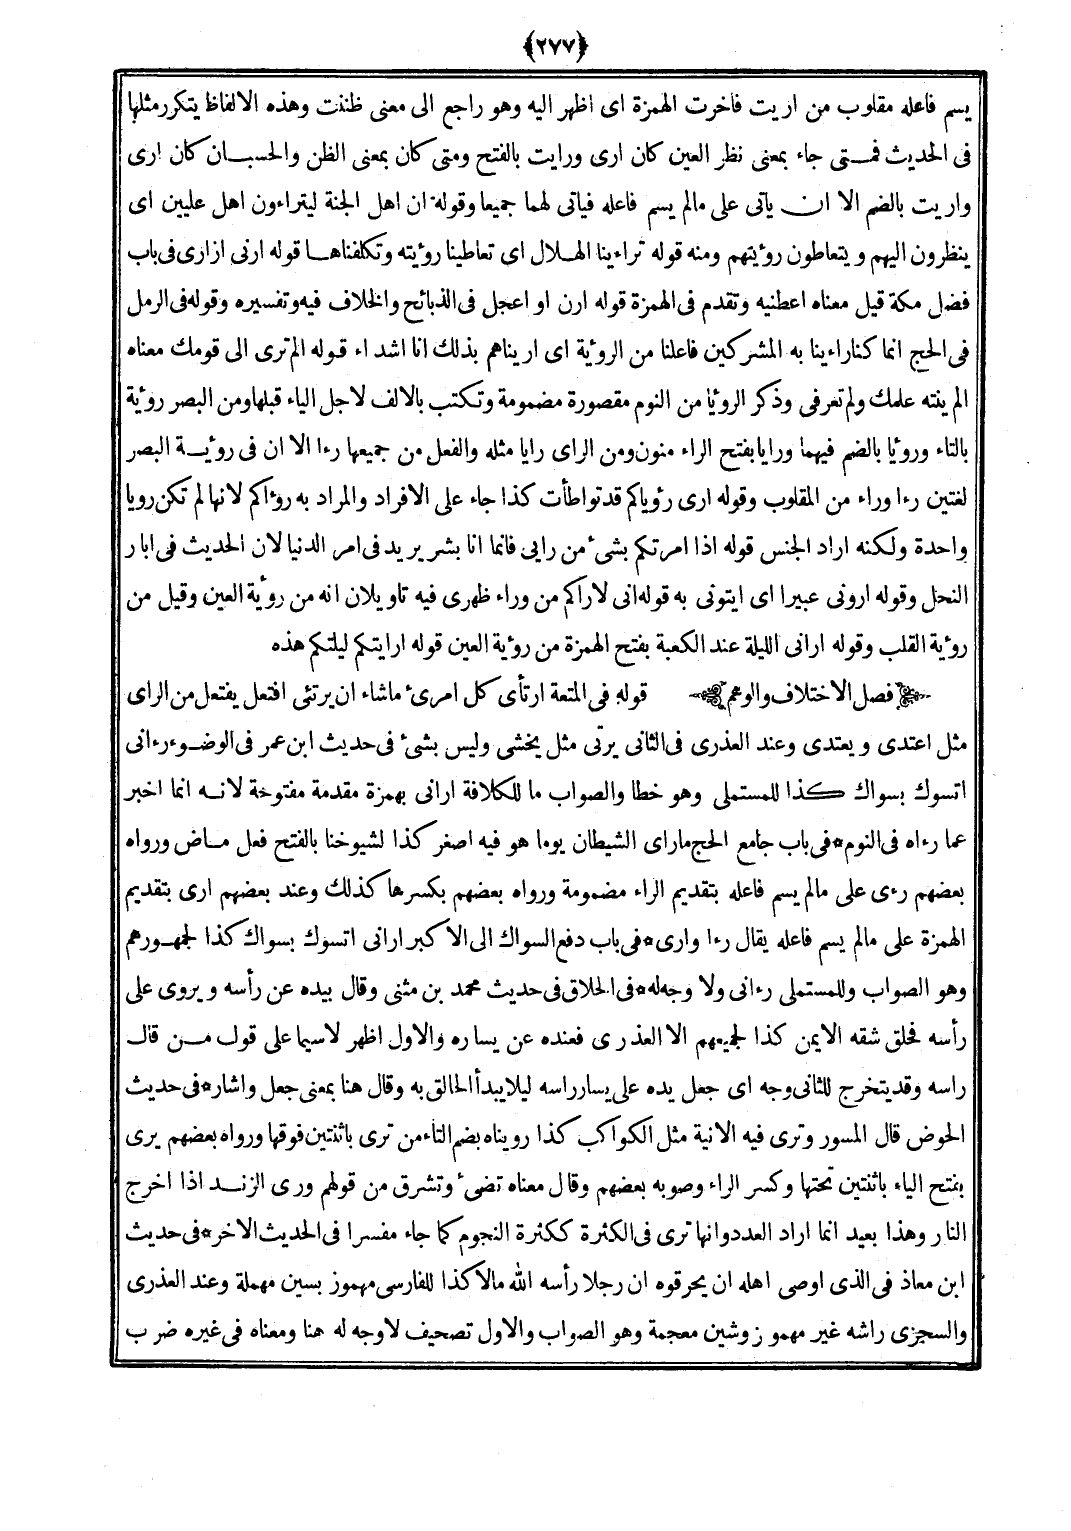 ﴿٢٧٧﴾
يسم فاعله مقلوب من اريت فاخرت الهمزة اى اظهر اليه وهو راجع الى معنى ظننت وهذه الالفاظ يتكرر مثلها
فى الحديث فمتى جاء بمعنى نظر العين كان ارى ورايت بالفتح ومتى كان بمعنى الظن والحسبان كان ارى
واريت بالضم الا ان ياتى على مالم يسم فاعله فياتى لهما جميعا وقوله ان اهل الجنة ليتراءون اهل عليين اى
ينظرون اليهم و يتعاطون رؤيتهم ومنه قوله تراءينا الهلال اى تعاطينا رؤيته وتكلفناها قوله ارنى ازارى فى باب
فضل مكة قيل معناه اعطنيه وتقدم فى الهمزة قوله ارن او اعجل فى الذبائح والخلاف فيه وتفسيره وقوله فى الرمل
فى الحج انما كنا راءينا به المشركين فاعلنا من الرؤية اى اريناهم بذلك انا اشداء قوله الم ترى الى قومك معناه
الم ينته علمك ولم تعرفى وذكر الرؤيا من النوم مقصورة مضمومة وتكتب بالالف لاجل الياء قبلها ومن البصر رؤية
بالتاء ورويًا بالضم فيهما ورايا بفتح الراء منون ومن الراى رايا مثله والفعل من جميعها رءا الا ان فى رؤيـة البصر
لغتين رءا وراء من المقلوب وقوله ارى رؤياكم قد تواطأت كذا جاء على الافراد والمراد به رؤاكم لانها لم تكن رويا
واحدة ولكنه اراد الجنس قوله اذا امرتكم بشىء من رايى فانما انا بشر يريد فى امر الدنيا لان الحديث فى ابار
النحل وقوله ارونى عبيرا اى ايتونى به قوله انى لاراكم من وراء ظهرى فيه تاويلان انه من رؤية العين وقيل من
رؤية القلب وقوله ارانى الليلة عند الكعبة بفتح الهمزة من رؤية العين قوله ارايتكم ليلتكم هذه
فصل الاختلاف والوهم قوله فى المتعة ارتأى كل امرىء ماشاء ان يرتئى افتعل يفتعل من الراى
مثل اعتدى و يعتدى وعند العذرى فى الثانى يرتى مثل يخشى وليس بشىء فى حديث ابن عمر فى الوضوء رءانى
اتسوك بسواك كذا للمستملى وهو خطا والصواب ما للكلافة ارانى بهمزة مقدمة مفتوحة لانه انما اخبر
عما رءاه فى النوم * فى باب جامع الحج ماراى الشيطان يوما هو فيه اصغر كذا لشيوخنا بالفتح فعل ماض ورواه
بعضهم رءى على مالم يسم فاعله بتقديم الراء مضمومة ورواه بعضهم بكسرها كذلك وعند بعضهم ارى بتقديم
الهمزة على مالم يسم فاعله يقال رءا وارى * فى باب دفع السواك الى الاكبر ارانى اتسوك بسواك كذا لجمهورهم
وهو الصواب وللمستملى رءانى ولا وجه له * فى الحلاق فى حديث محمد بن مثنى وقال بيده عن رأسه و يروى على
رأسه فحلق شقه الايمن كذا لجميعهم الا العذرى فعنده عن يساره والاول اظهر لاسيما على قول من قال
راسه وقد يتخرج للثانى وجه اى جعل يده على يسار راسه ليلا يبدأ الحالق به وقال هنا بمعنى جعل واشار * فى حديث
الحوض قال المسور وترى فيه الانية مثل الكواكب كذا رويناه بضم التاء من ترى باثنتين فوقها ورواه بعضهم يرى
بفتح الياء باثنتين تحتها وكسر الراء وصوبه بعضهم وقال معناه تضىء وتشرق من قولهم ورى الزند اذا اخرج
النار وهذا بعيد انما اراد العدد وانها ترى فى الكثرة ككثرة النجوم كما جاء مفسرا فى الحديث الاخر * فى حديث
ابن معاذ فى الذى اوصى اهله ان يحرقوه ان رجلا رأسه الله مالا كذا للفارسى مهموز بسين مهملة وعند العذرى
والسجزى راشه غير مهموز وشين معجمة وهو الصواب والاول تصحيف لاوجه له هنا ومعناه فى غيره ضرب